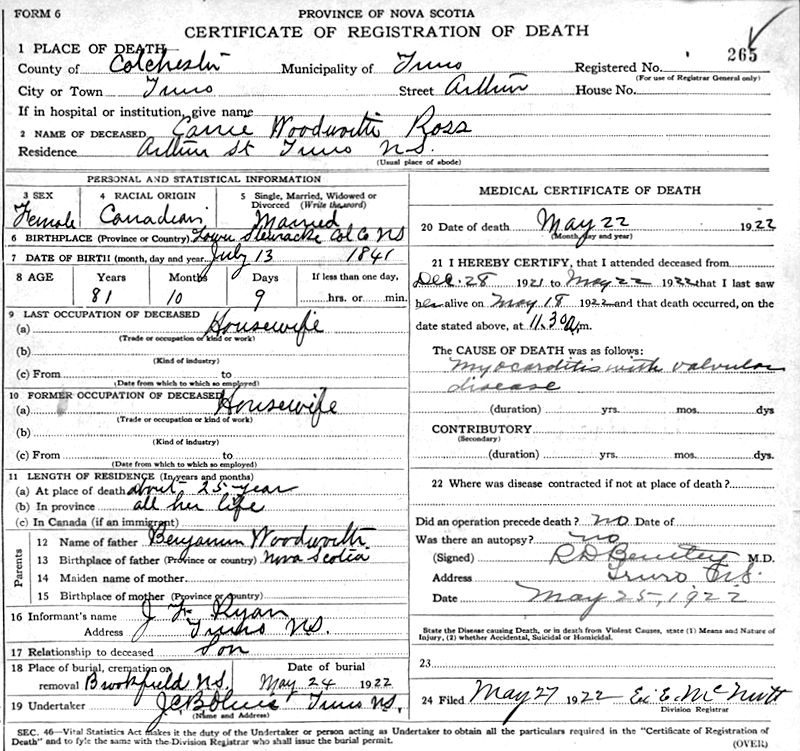 FORM 6
PROVINCE OF NOVA SCOTIA
CERTIFICATE OF REGISTRATION OF DEATH
265
1 PLACE OF DEATH
County of Colchester Municipality of Truro Registered No.
(For use of Registrar General only)
City or Town Truro Street Arthur House No.
If in hospital or institution, give name
2 NAME OF DECEASED Carrie Woodworth Ross
Residence Arthur St Truro N.S.
(Usual place of abode)
PERSONAL AND STATISTICAL INFORMATION
3 SEX 4 RACIAL ORIGIN 5 Single, Married, Widowed or Divorced (Write the word)
Female Canadian Married
6 BIRTHPLACE (Province or Country) Lower Stewiacke Col Co NS
7 DATE OF BIRTH (month, day and year) July 13 1841
8 AGE Years Months Days If less than one day,
81 10 9 hrs. or min.
9 LAST OCCUPATION OF DECEASED
(a) Housewife
(Trade or occupation or kind of work)
(b)
(Kind of industry)
(c) From to
(Date from which to which so employed)
10 FORMER OCCUPATION OF DECEASED
(a) Housewife
(Trade or occupation or kind of work)
(b)
(Kind of industry)
(c) From to
(Date from which to which so employed)
11 LENGTH OF RESIDENCE (In years and months)
(a) At place of death about 25 year
(b) In province all her life
(c) In Canada (if an immigrant)
Parents
12 Name of father Benjamin Woodworth
13 Birthplace of father (Province or country) Nova Scotia
14 Maiden name of mother
15 Birthplace of mother (Province or country)
16 Informant's name J Ryan
Address Truro N.S.
17 Relationship to deceased Son
18 Place of burial, cremation or removal Brookfield N.S. Date of burial May 24 1922
19 Undertaker Truro N.S.
(Name and Address)
MEDICAL CERTIFICATE OF DEATH
20 Date of death May 22 1922
(Month, day and year)
21 I HEREBY CERTIFY, that I attended deceased from
Dec. 28 1921 to May 22 1922 that I last saw
her alive on May 18 1922 and that death occurred, on the
date stated above, at 11.30 a.m.
The CAUSE OF DEATH was as follows:
Myocarditis with valvular
disease
(duration) yrs. mos. dys
CONTRIBUTORY
(Secondary)
(duration) yrs. mos. dys.
22 Where was disease contracted if not at place of death?
Did an operation precede death? no Date of
Was there an autopsy? no
(Signed) M.D.
Address Truro, N.S.
Date May 25, 1922
State the Disease causing Death, or in death from Violent Causes, state (1) Means and Nature of
Injury, (2) whether Accidental, Suicidal or Homicidal.
23
24 Filed May 27 1922 E. E. McNutt
Division Registrar
SEC. 46—Vital Statistics Act makes it the duty of the Undertaker or person acting as Undertaker to obtain all the particulars required in the "Certificate of Registration of
Death" and to fyle the same with the Division Registrar who shall issue the burial permit.
(OVER)